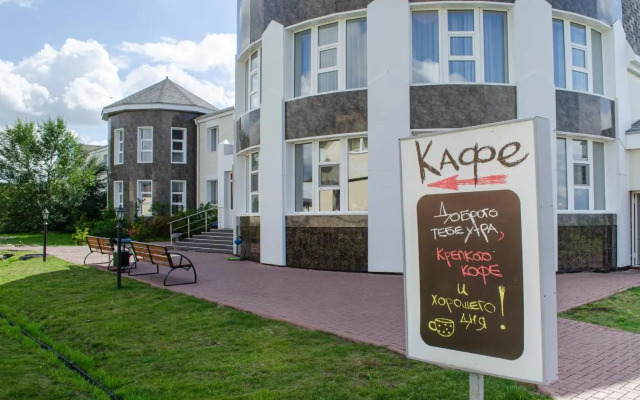 Кафе
Доброго
тебе утра,
крепкого
кофе
и
хорошего
дня!